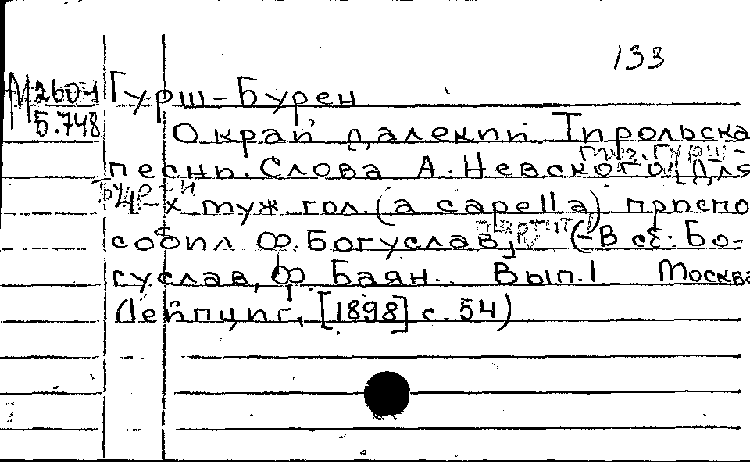 133
М 260-1 Гурш-Бурен
5.748
О край далекий Тирольска
песнь. Слова А. Невского. [Для
4-х муж гол (a capella) приспо
собил Ф. Богуслав, (-В сб: Бо-
гуслав, Ф. Баян. Вып. I Москва
Лейпциг, [1898] с. 54)